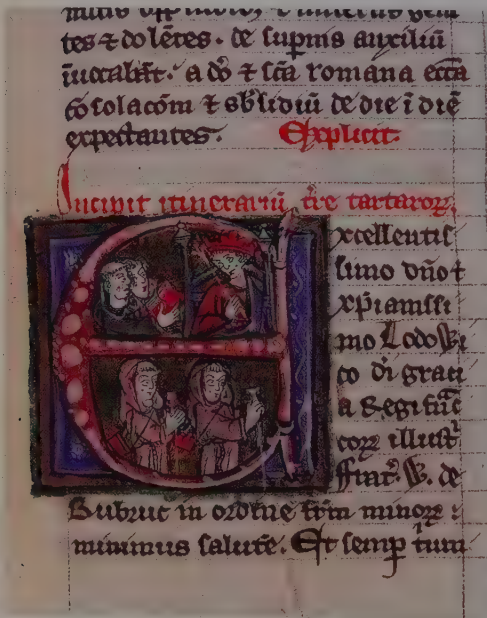 tes ⁊ dolētes. de supnis auxiliū
īuocabāt. a dō ⁊ sc̄a romana ecc̄a
ꝯsolacōm ⁊ sbsidiū de die ī diē
expectantes. Explicit.
Incipit itinerariū t̄re tartaroꝝ.
Excellentis
simo dn̄o ⁊
xp̄ianissi
mo Lodowi
co di grati
a Regi frāc
coꝝ illust
frat̄. W. de
Rubruc in ordine frm minoꝝ
minimus salutē. Et semp tium